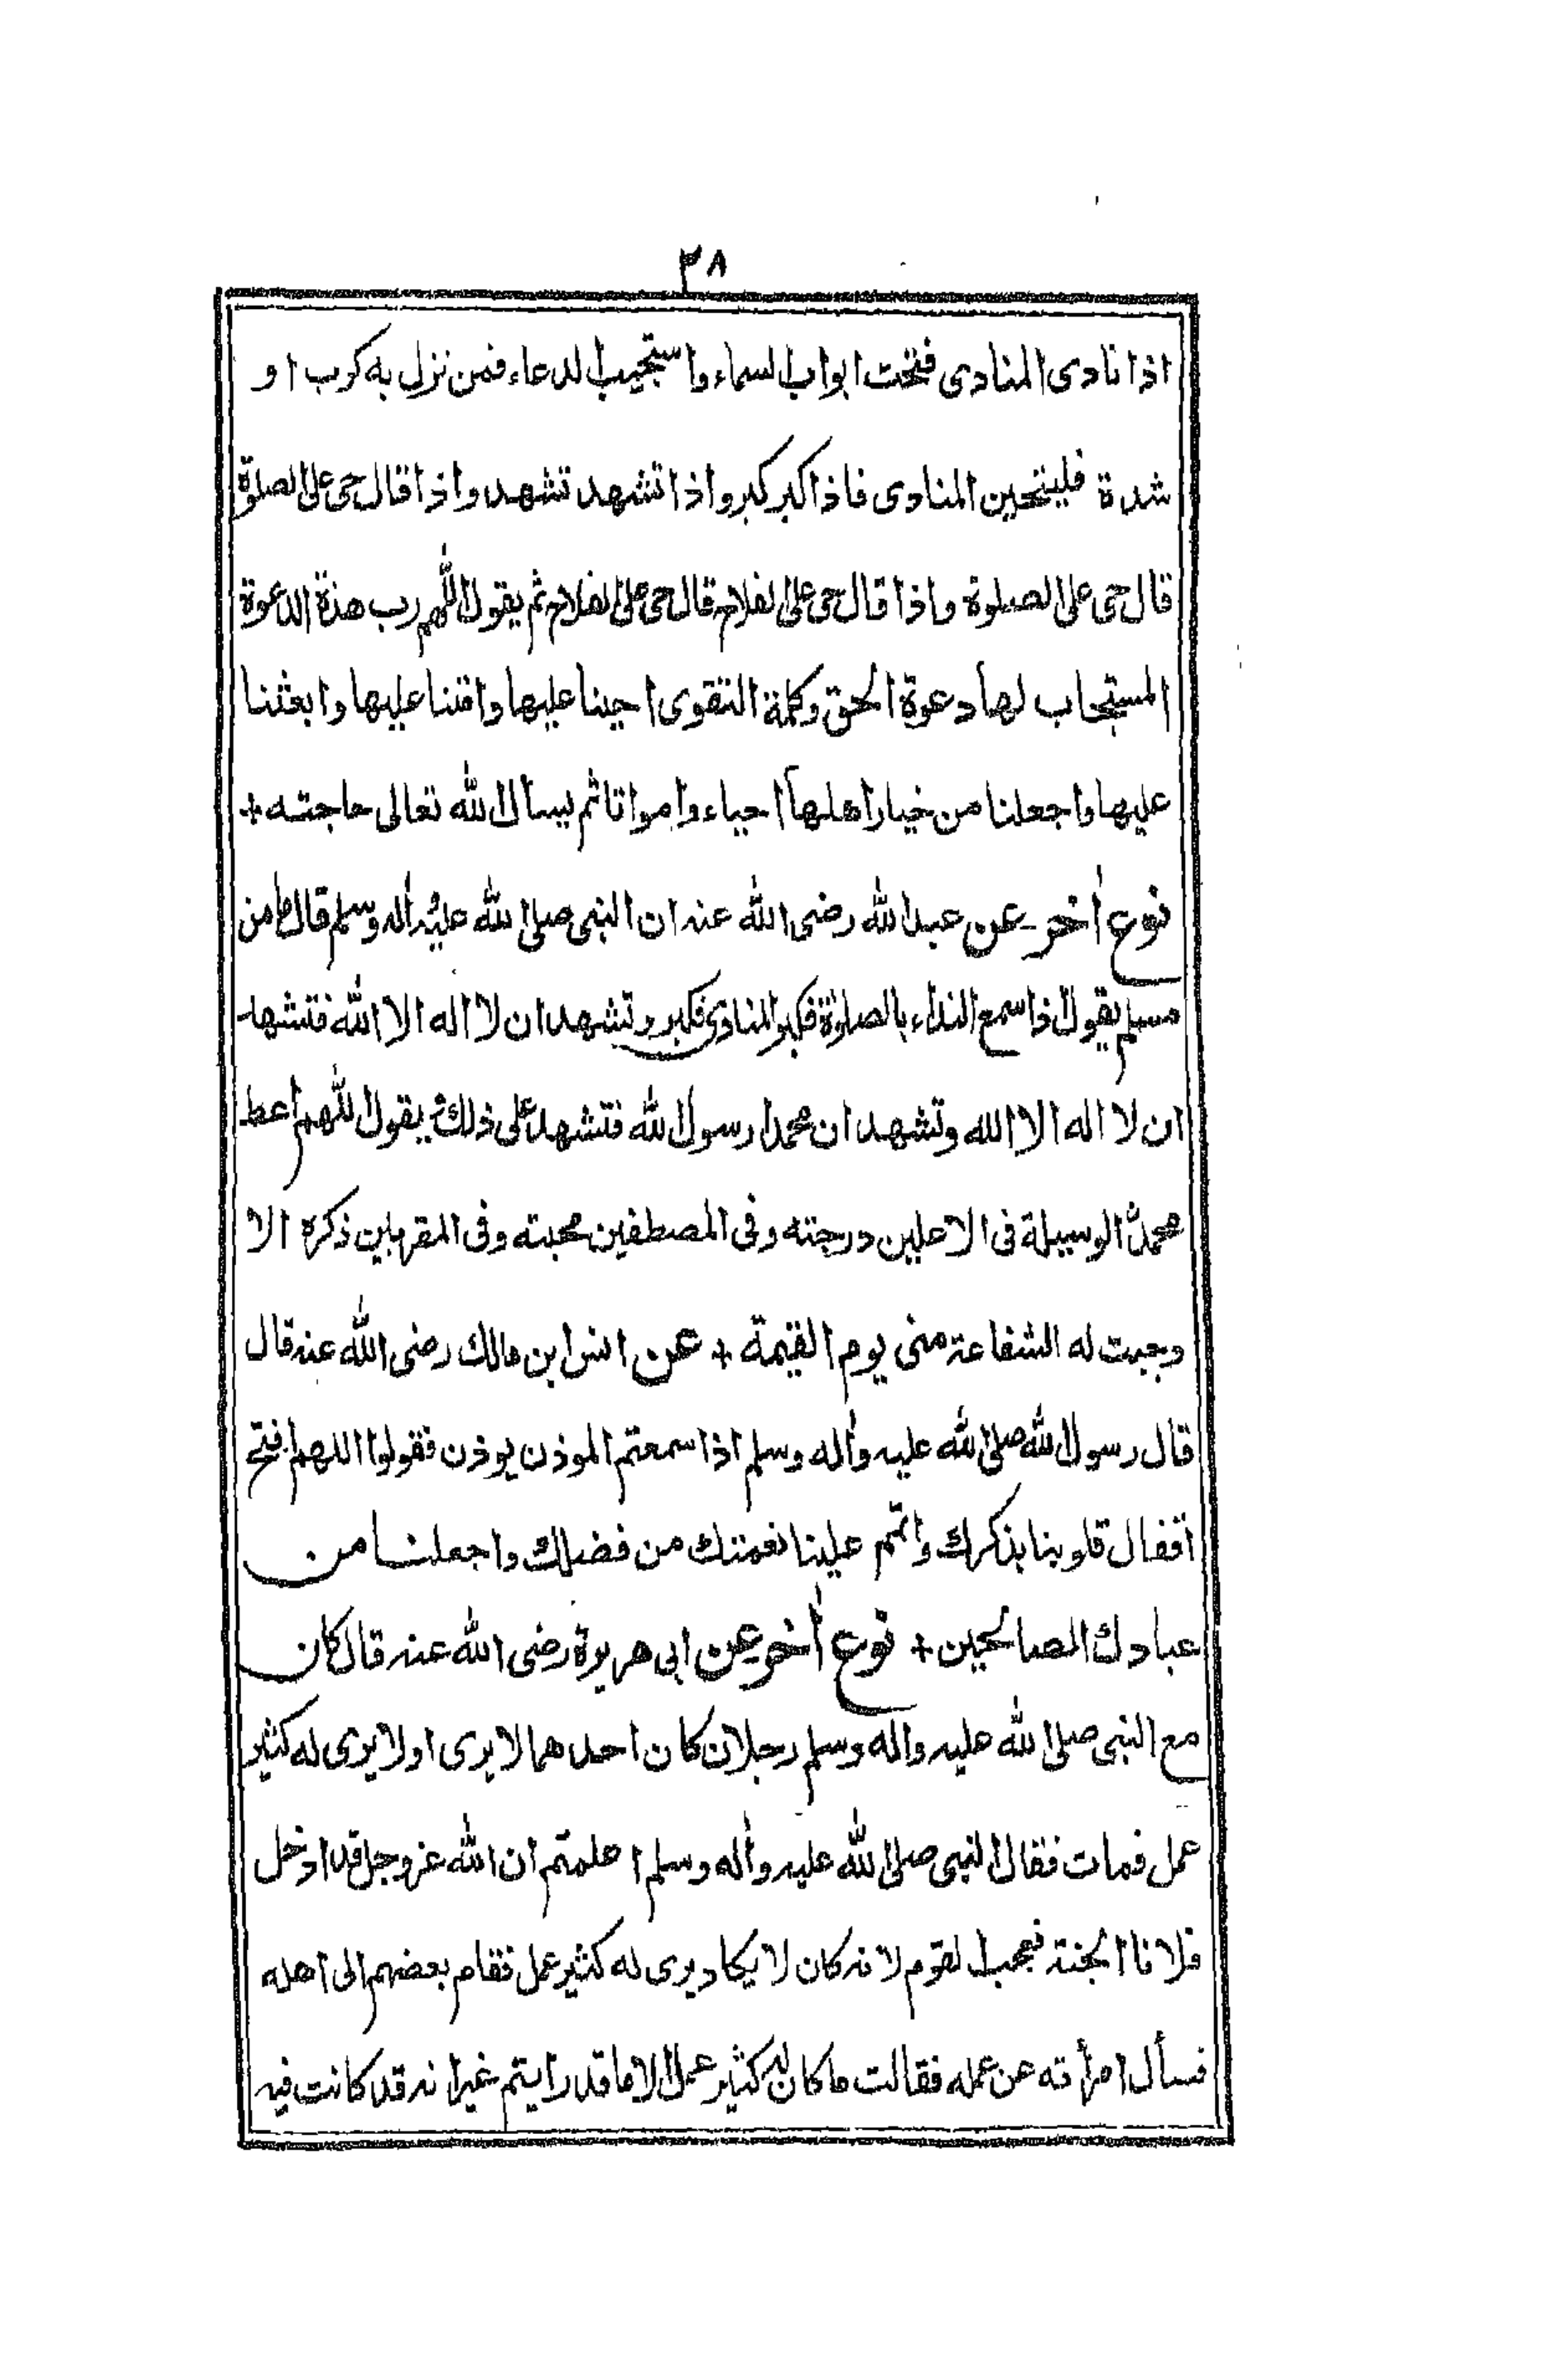 ٣٨
اذا نادى المنادى فتحت ابواب السماء واستجيب الدعاء فمن نزل به كرب او
شدة فليتحين المنادى فاذا كبر كبر واذا تشهد تشهد واذا قال حى على الصلوة
قال حى على الصلوة واذا قال حى على الفلاح قال حى على الفلاح ثم يقول اللهم رب هذه الدعوة
المستجاب لها دعوة الحق وكلمة التقوى احينا عليها وامتنا عليها وابعثنا
عليها واجعلنا من خيار اهلها احياء وامواتا ثم يسأل الله تعالى حاجته +
نوع أخر عن عبد الله رضى الله عنه ان النبى صلى الله عليه وأله وسلم قال ما من
مسلم يقول اذا سمع النداء بالصلوة فكبر المنادى فكبر وتشهد ان لا اله الا الله فتشهد
ان لا اله الا الله وتشهد ان محمدا رسول الله فتشهد على ذلك ثم يقول اللهم اعط
محمدا الوسيلة فى الاعلين درجته وفى المصطفين محبته وفى المقربين ذكره الا
وجبت له الشفاعة منى يوم القيمة + عن انس ابن مالك رضى الله عنه قال
قال رسول الله صلى الله عليه وأله وسلم اذا سمعتم الموذن يوذن فقولوا اللهم افتح
اقفال قلوبنا بذكرك واتمم علينا نعمتك من فضلك واجعلنا من
عبادك الصالحين + نوع أخر عن ابى هريرة رضى الله عنه قال كان
مع النبى صلى الله عليه واله وسلم رجلان كان احدهما لا يرى اولا يرى له كثير
عمل فمات فقال النبى صلى الله عليه وأله وسلم اعلمتم ان الله عز وجل قد ادخل
فلانا الجنة فعجب القوم لانه كان لا يكاد يرى له كثير عمل فقام بعضهم الى اهله
فسأل امرأته عن عمله فقالت ما كان له كثير عمل الا ما قد رايتم غير انه قد كانت فيه